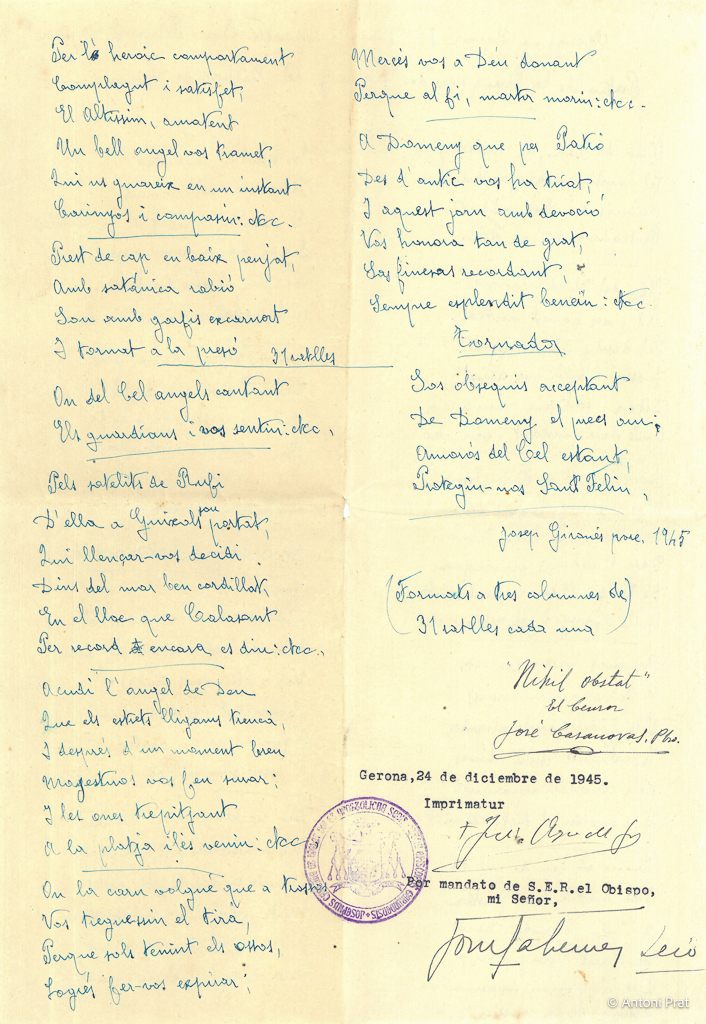 Per l'heroic comportament
Complagut i satisfet,
El Altissim, amatent
Un bell angel vos tramet,
Qui us guareix en un instant
Carinyos i compasiu: &c.
Prest de cap en baix penjat,
Amb satánica rabió
Sou amb garfis excarnort
I tornat a la presó 31 ratlles
On del Cel angels cantant
Els guardians i vos sentiu: &c.
Pels satelits de Rufi
D'ella a Guixols sou portat,
Qui llençar-vos decidi
Dins del mar ben cordillat,
En el lloc que Calasant
Per record encara es diu: &c.
Acudi l'angel de Deu
Que els estrets lligams trencà,
I després d'un moment breu
Magestuos vos feu surar;
I les ones trepitjant
A la platja ilés veniu: &c
On la carn volgué que a trossos
Vos treguessin el tirà,
Perque sols tenint els ossos,
Logrés fer-vos expirar;
Mercés vos a Déu donant
Perque al fi, martir moriu: &c.
A Domeny que per Patró
Des d'antic vos ha triat,
I aquest jorn amb devoció
Vos honora tan de grat,
Sas finesas recordant,
Sempre esplendit beneiu: &c.
Tornada
Sos obsequis acceptant
De Domeny el precs oiu;
Amorós del Cel estant,
Protegiu-nos Sant Feliu,
Josep Gironés pvre. 1945
(Formats a tres columnes de
31 ratlles cada una)
"Nihil obstat"
El Censor
José Casanovas, Pbro.
Gerona, 24 de diciembre de 1945.
Imprimatur
Por mandato de S.E.R. el Obispo,
mi Señor,
© Antoni Prat